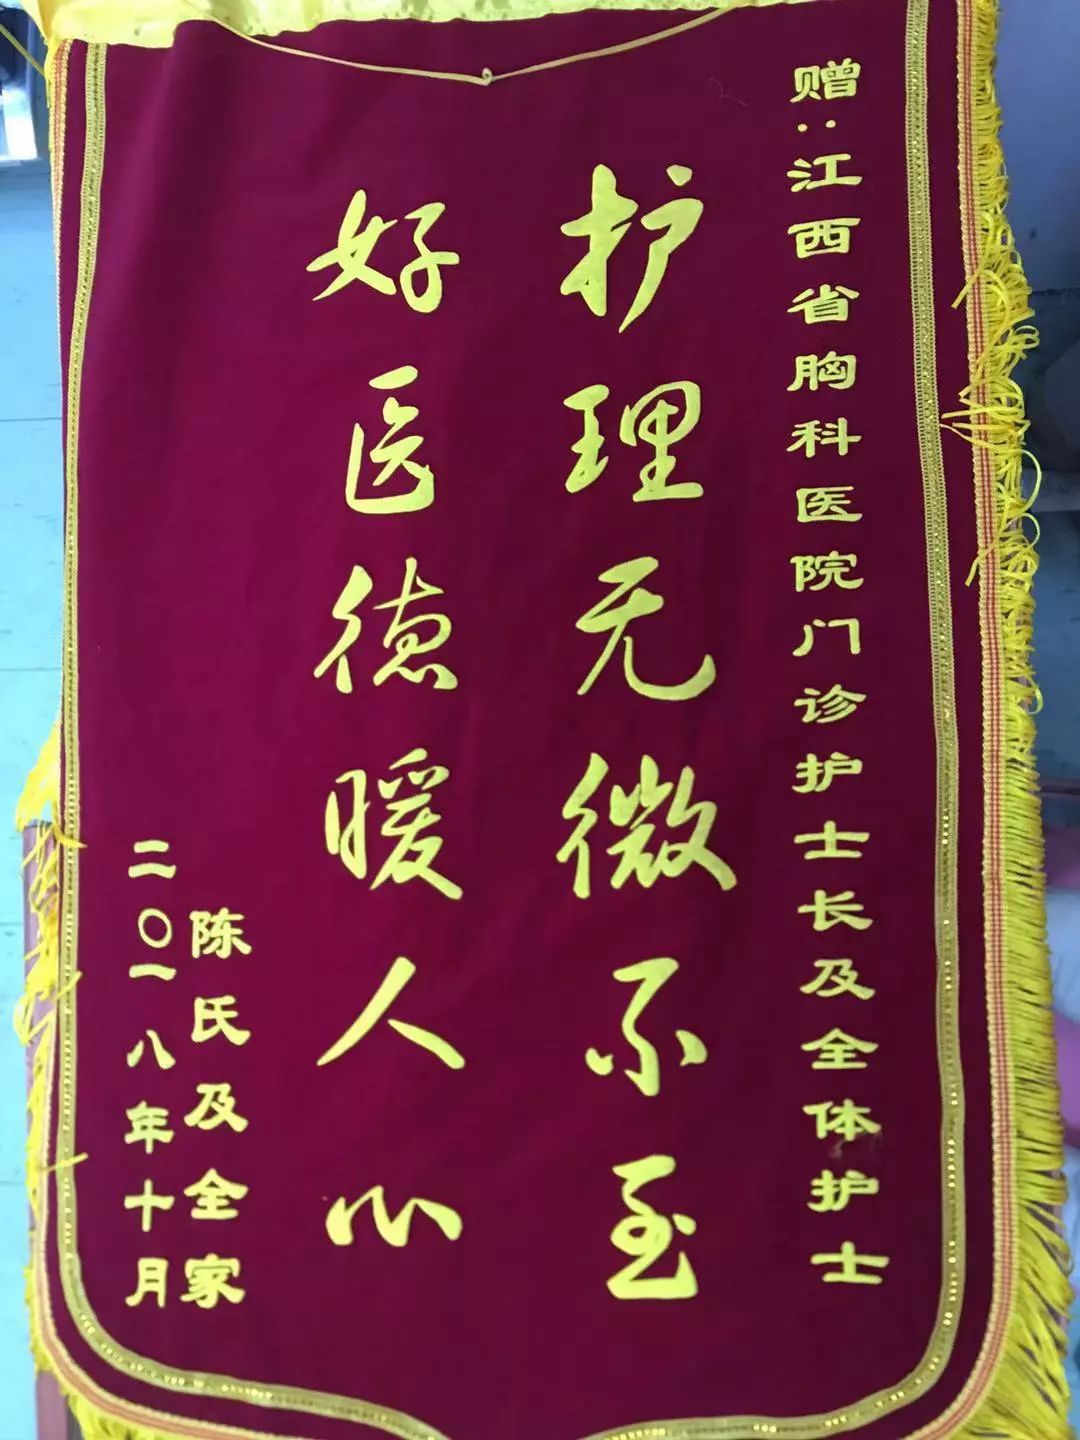 赠:江西省胸科医院门诊护士长及全体护士
护理无微不至
好医德暖人心
陈氏及全家
二〇一八年十月